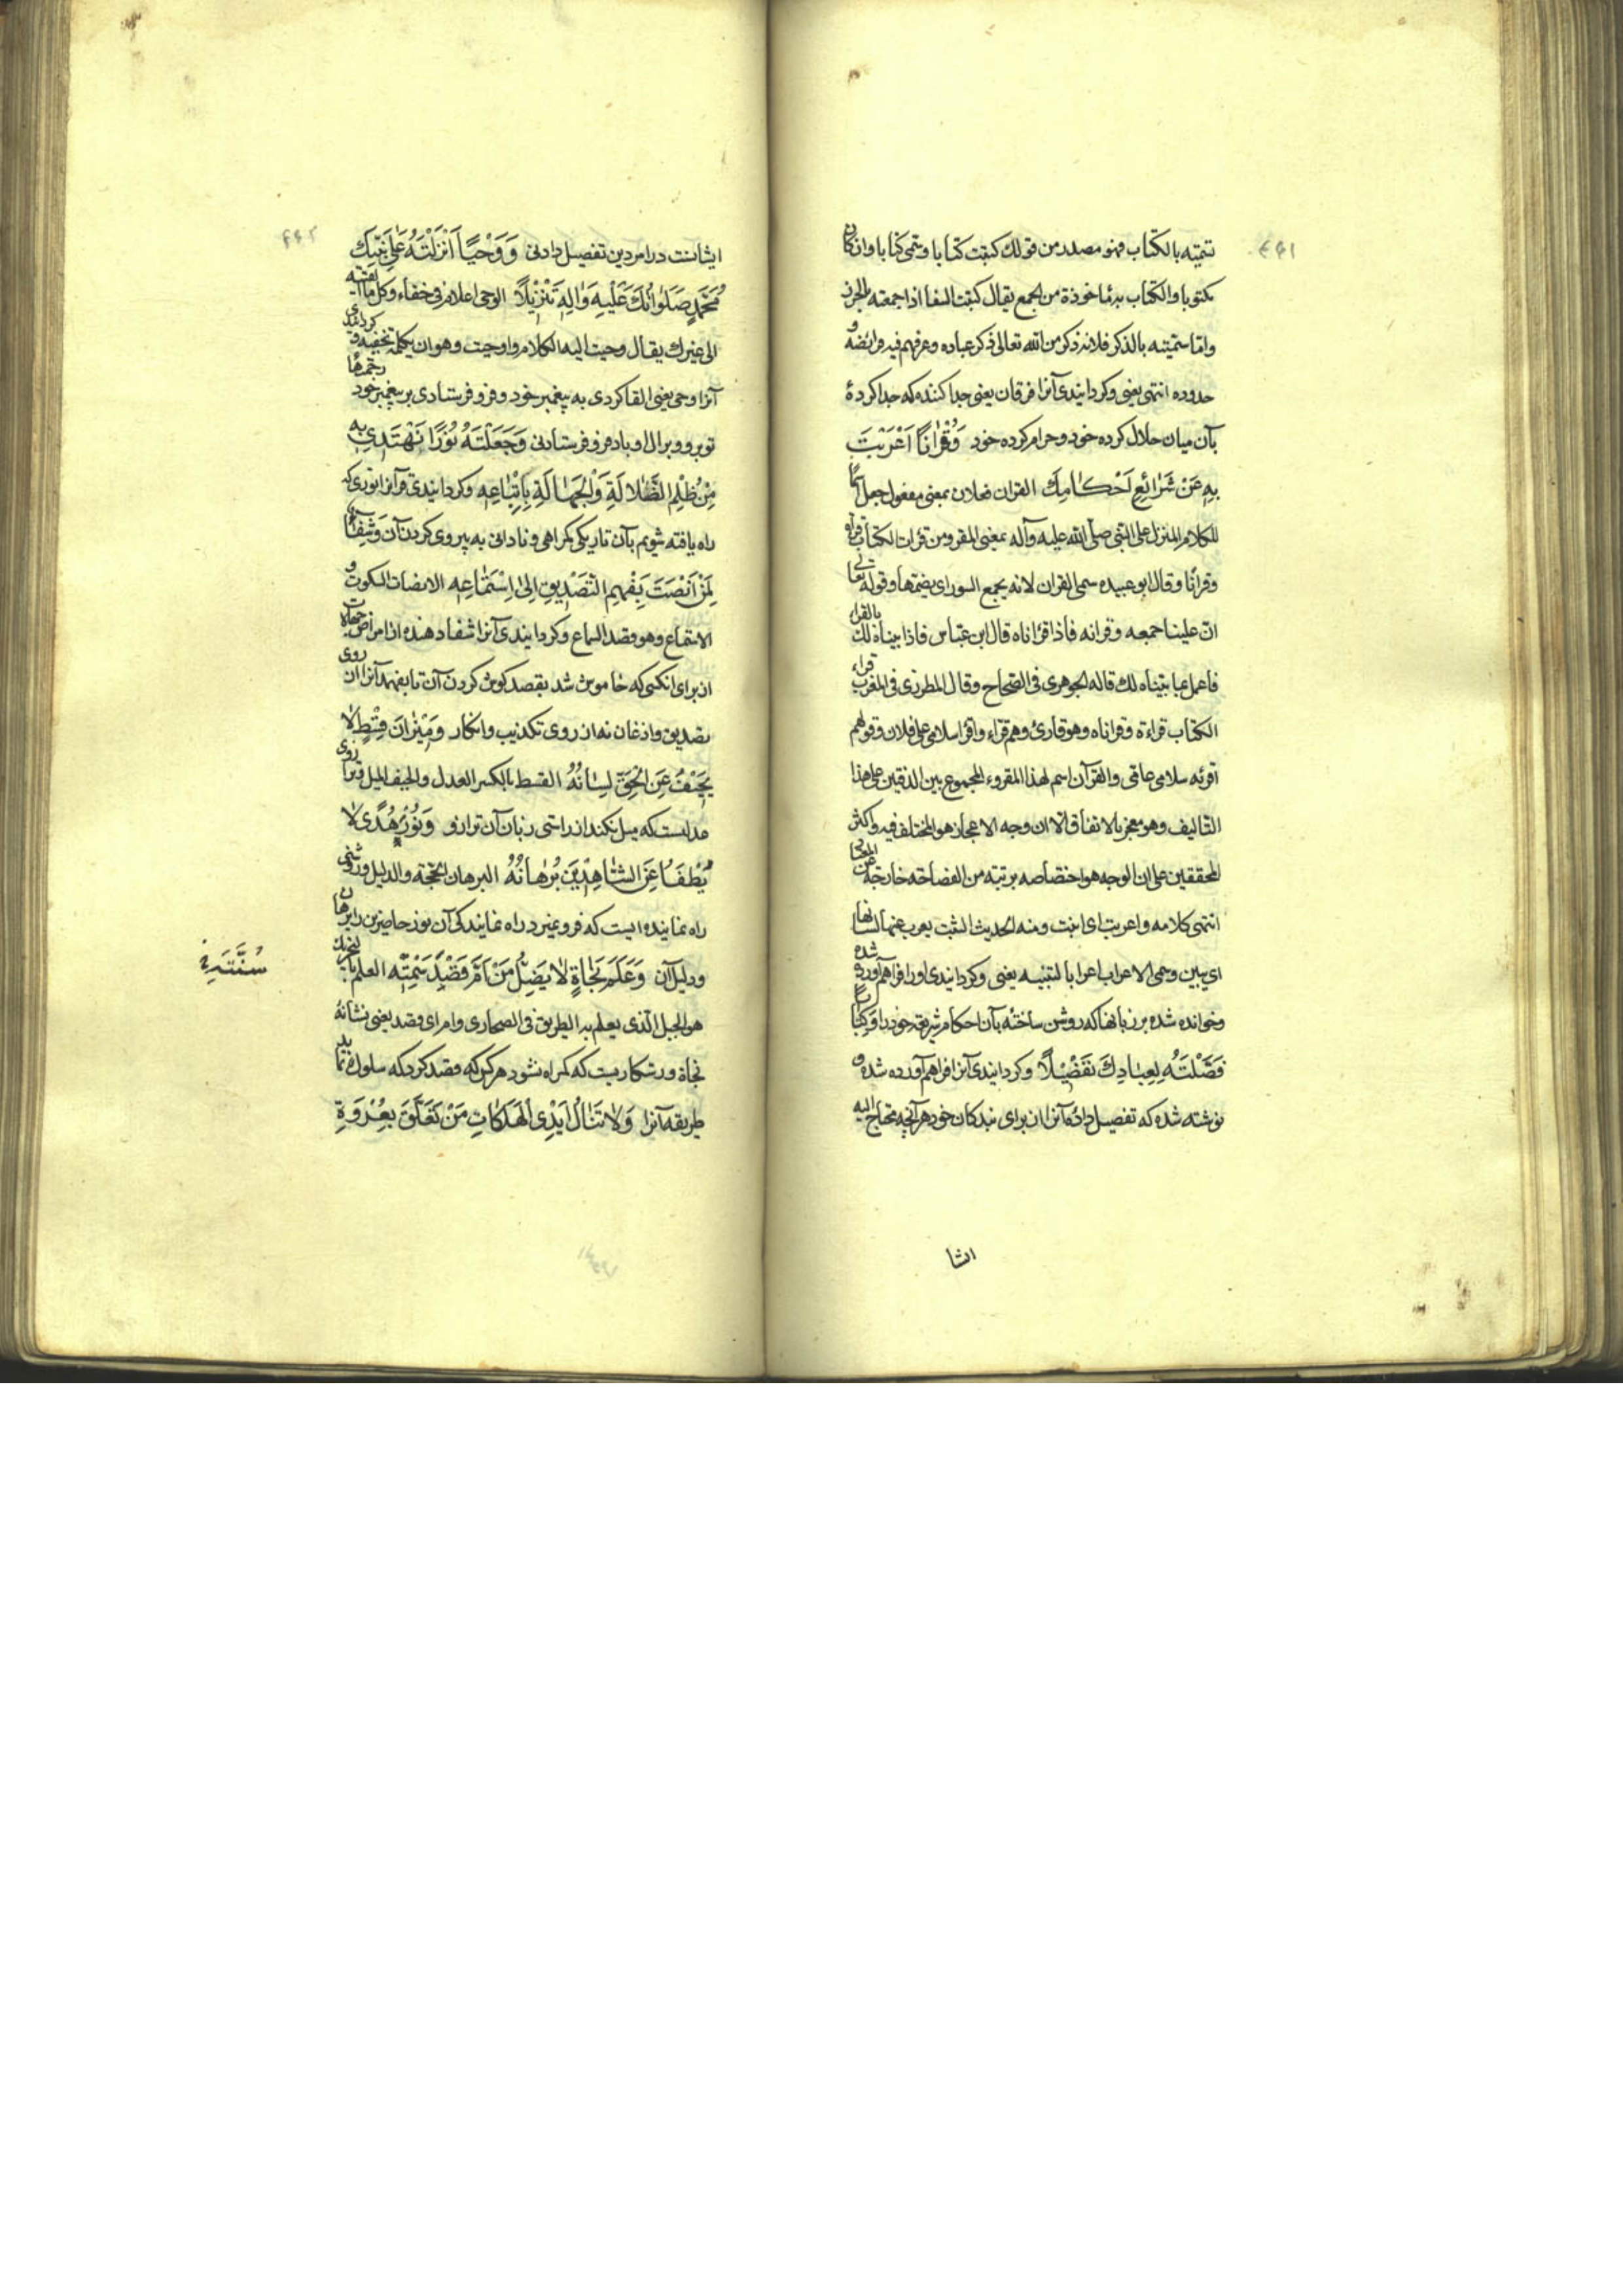 ۴۴۱
تسمیته بالکتاب فهو مصدر من قولک کتبت کتابا وسمی کتابا وان کان
مکتوبا والکتاب به ماخوذة من الجمع یقال کتبت السقا اذا جمعته بالخرز
واما تسمیته بالذکر فلانه ذکر من الله تعالی ذکر عباده وعرفهم فیه فرائضه و
حدوده انتهی یعنی وکردانیدی آنرا فرقان یعنی جدا کننده که جدا کردهٔ
بآن میان حلال کرده خود وحرام کرده خود وَقُرْاٰنًا اَعْرَبْتَ
بِهِ عَنْ شَرٰائِعِ اَحْکٰامِكَ القران فعلان بمعنی مفعول جعل اسمًا
للکلام المنزل علی النبی صلّی الله علیه وآله بمعنی المقرو من قرات الکتاب قراءة
وقرانا وقال ابو عبیده سمی القران لانه یجمع السور ای یضمها وقوله تعالی
انّ علینا جمعه وقرانه فاذا قراناه قال ابن عبّاس فاذا بیناه لك بالقراءة
فاعمل بما بیّناه لك قاله الجوهری فی الصّحاح وقال المطرزی فی المغرب قراء
الکتاب قراءة وقراناه وهو قارئ وهم قرّاء واقرا سلامی علی فلان وقولهم
اقرئه سلامی عامّی والقرآن اسم لهذا المقروء المجموع بین الدفتین علی هذا
التالیف وهو معجز بالاتفاق الا ان وجه الاعجاز هو المختلف فیه واکثر
المحققین علی ان الوجه هو اختصاصه برتبته من الفصاحة خارجة عن المعتاد
انتهی کلامه واعربت ای ابنت ومنه الحدیث الثیب یعرب عنها لسانها
ای یبین وسمی الاعراب اعرابا لتبیینه یعنی وکردانیدی اورا فراهم آورده شده
وخوانده شده بر زبانها که روشن ساخته بآن احکام شریعت خود را وَکِتٰابًا
فَصَّلْتَهُ لِعِبٰادِكَ تَفْصِیْلًا وکردانیدی آنرا فراهم آورده شده و
نوشته شده که تفصیل دادهٔ آنرا از برای بندکان خود هر آنچه محتاج الیه
ایشا
۴۴۲
ایشانست در امر دین تفصیل دادنی وَوَحْیًا اَنْزَلْتَهُ عَلیٰ نَبِیِّكَ
مُحَمَّدٍ صَلَوٰاتُكَ عَلَیْهِ وَاٰلِهِ تَنْزِیْلًا الوحی اعلام فی خفاء وکل ما القیته
الی غیرك یقال وحیت الیه الکلام واوحیت وهو ان یکلمه تخفیه و کردانیدی
آنرا وحی یعنی القا کردی به پیغمبر خود وفرو فرستادی بر پیغمبر خود رحمتها
تو برو وبر ال او باد فرو فرستادنی وَجَعَلْتَهُ نُوْرًا نَهْتَدِیْ بِهِ
مِنْ ظُلَمِ الضَّلٰالَةِ وَالْجَهٰالَةِ بِاِتِّبٰاعِهِ وکردانیدی قرآنرا نوری که
راه یافته شویم بآن تاریکی کمراهی ونادانی به پیروی کردن آن وَشِفٰاءً
لِمَنْ اَنْصَتَ بِفَهِیْمِ التَّصْدِیْقِ اِلیٰ اِسْتِمٰاعِهِ الانصات السکوت و
الاستماع وهو قصد السماع وکردانیدی آنرا شفا دهنده از امراض جهالات
از برای انکسی که خاموش شد بقصد کوش کردن آن تا بفهمد آنرا از روی
تصدیق واذعان نه از روی تکذیب وانکار وَمِیْزٰانَ قِسْطٍ لٰا
یَحِیْفُ عَنِ الْحَقِّ لِسٰانُهُ القسط بالکسر العدل والحیف المیل وترازوی
عدلست که میل نکند از راستی زبان آن ترازو وَنُوْرَ هُدًی لٰا
یُطْفَاُ عَنِ الشّٰاهِدِیْنَ بُرْهٰانُهُ البرهان الحجّة والدلیل وروشنی
راه نماینده ایست که فرو نمیرد راه نمایندکی آن نور حاضرین را برهان
ودلیل آن وَعَلَمَ نَجٰاةٍ لٰا یَضِلُّ مَنْ اَمَّ قَصْدَ سَمْتِهِ العلم بالتحریك
سُنَّتِهِ خ
هو الجبل الّذی یعلم به الطریق فی الصحاری وام ای قصد یعنی نشانهٔ
نجاة ورستکاریست که کمراه نشود هر کس که قصد کرد که سلوك نماید
طریقه آنرا وَلٰا تَنٰالُ اَیْدِی الْهَلَکٰاتِ مَنْ تَعَلَّقَ بِعُرْوَةِ